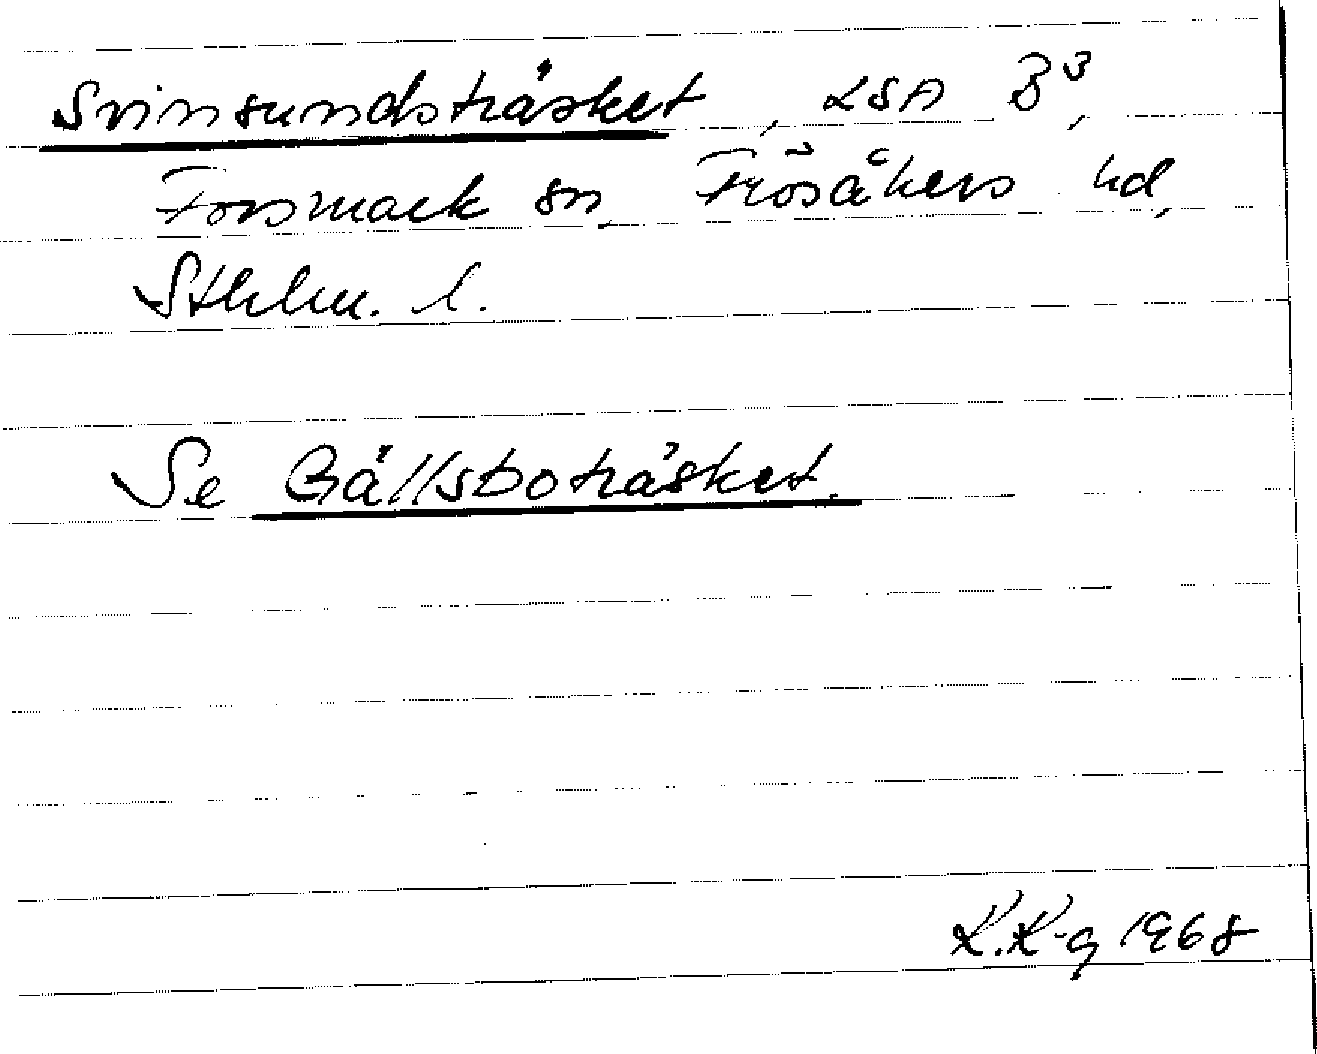 Svinsundsträsket, LSA B³,
Forsmark sn, Frösåkers hd,
Sthlm. l.
Se Gällsboträsket.
K.K-g 1968